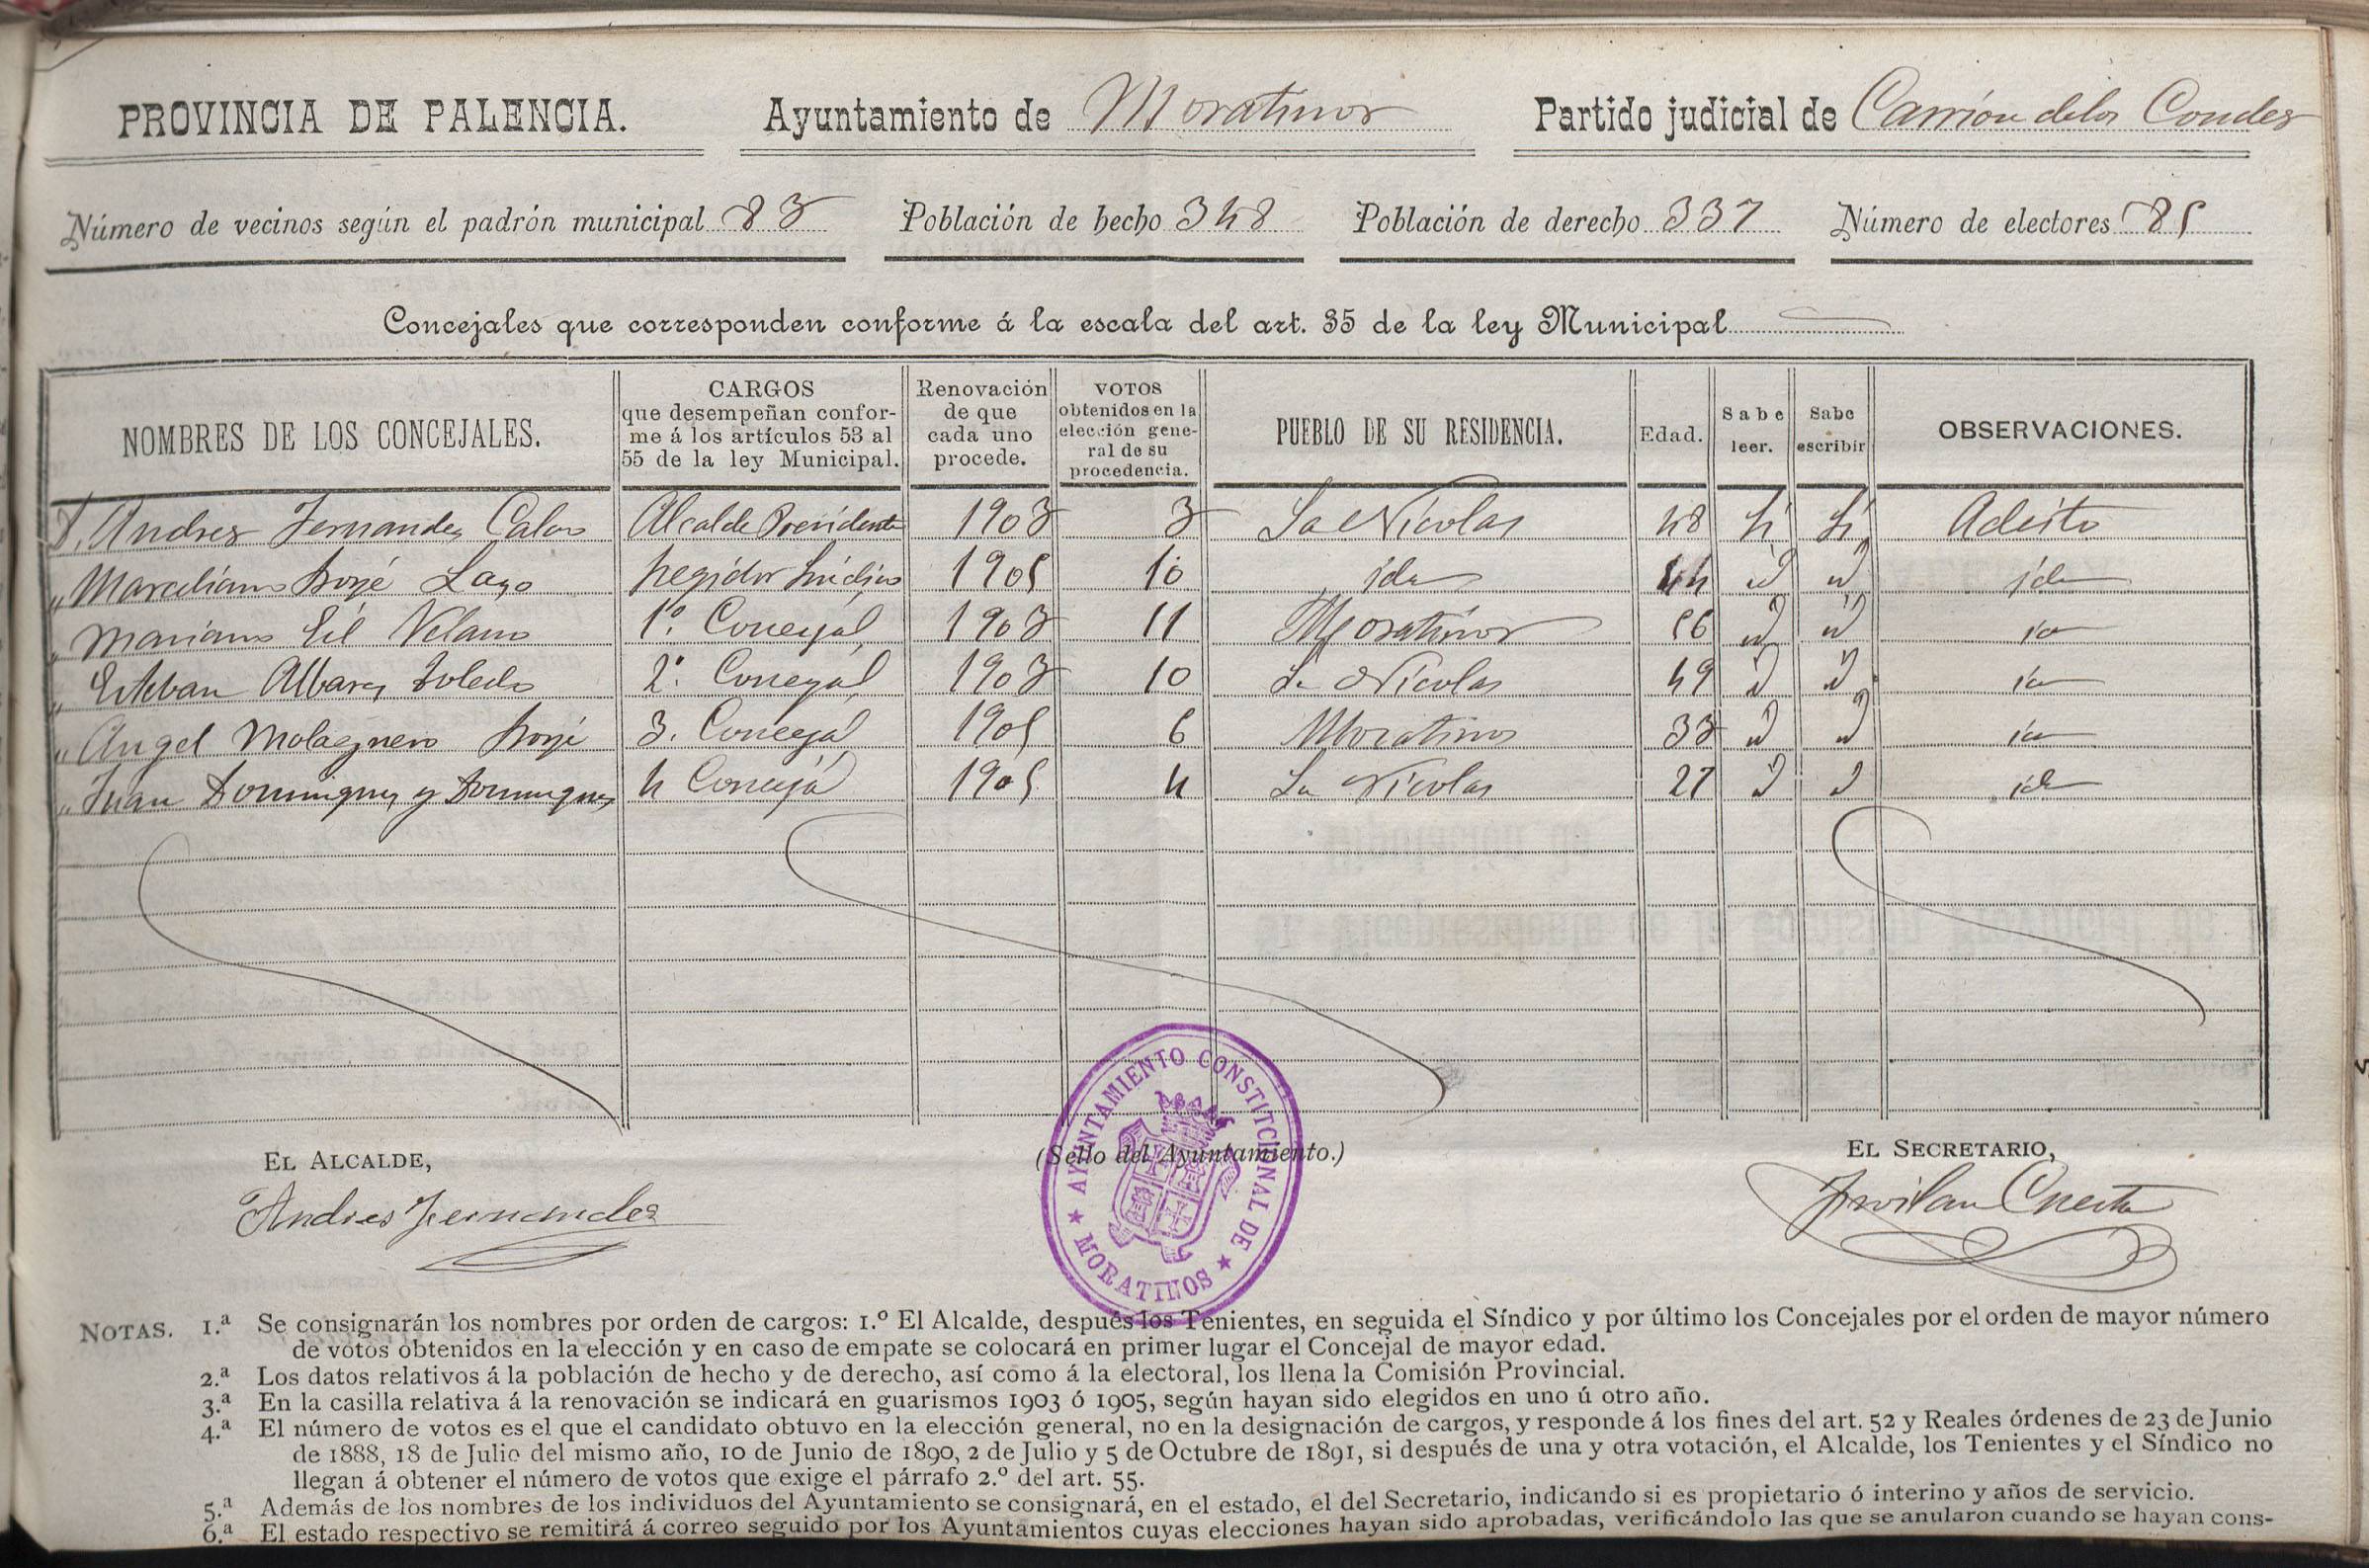 PROVINCIA DE PALENCIA. Ayuntamiento de Moratinos Partido judicial de Carrión de los Condes
Número de vecinos según el padrón municipal 83 Población de hecho 348 Población de derecho 337 Número de electores 85
Concejales que corresponden conforme á la escala del art. 35 de la ley Municipal
NOMBRES DE LOS CONCEJALES. CARGOS que desempeñan conforme á los artículos 53 al 55 de la ley Municipal. Renovación de que cada uno procede. VOTOS obtenidos en la elección general de su procedencia. PUEBLO DE SU RESIDENCIA. Edad. Sabe leer. Sabe escribir OBSERVACIONES.
D. Andres Fernandez Calvo Alcalde Presidente 1903 3 Sn Nicolas 48 Si Si Adicto
" Marceliano Borjé Lazo Regidor Sindico 1905 10 idm 44 id id idm
" Mariano Gil Velasco 1º. Concejal 1903 11 Moratinos 56 id id id
" Esteban Albarez Toledo 2º. Concejal 1903 10 Sn Nicolas 49 id id id
" Angel Molaguero Borjé 3. Concejal 1905 6 Moratinos 33 id id id
" Juan Dominguez y Dominguez 4 Concejal 1905 4 Sn Nicolas 27 id id id
EL ALCALDE, (Sello del Ayuntamiento.) EL SECRETARIO,
Andres Fernandez Cuesta
★ AYUNTAMIENTO CONSTITCIONAL DE ★ MORATINOS
NOTAS. 1.ª Se consignarán los nombres por orden de cargos: 1.º El Alcalde, después los Tenientes, en seguida el Síndico y por último los Concejales por el orden de mayor número
de votos obtenidos en la elección y en caso de empate se colocará en primer lugar el Concejal de mayor edad.
2.ª Los datos relativos á la población de hecho y de derecho, así como á la electoral, los llena la Comisión Provincial.
3.ª En la casilla relativa á la renovación se indicará en guarismos 1903 ó 1905, según hayan sido elegidos en uno ú otro año.
4.ª El número de votos es el que el candidato obtuvo en la elección general, no en la designación de cargos, y responde á los fines del art. 52 y Reales órdenes de 23 de Junio
de 1888, 18 de Julio del mismo año, 10 de Junio de 1890, 2 de Julio y 5 de Octubre de 1891, si después de una y otra votación, el Alcalde, los Tenientes y el Síndico no
llegan á obtener el número de votos que exige el párrafo 2.º del art. 55.
5.ª Además de los nombres de los individuos del Ayuntamiento se consignará, en el estado, el del Secretario, indicando si es propietario ó interino y años de servicio.
6.ª El estado respectivo se remitirá á correo seguido por los Ayuntamientos cuyas elecciones hayan sido aprobadas, verificándolo las que se anularon cuando se hayan cons-